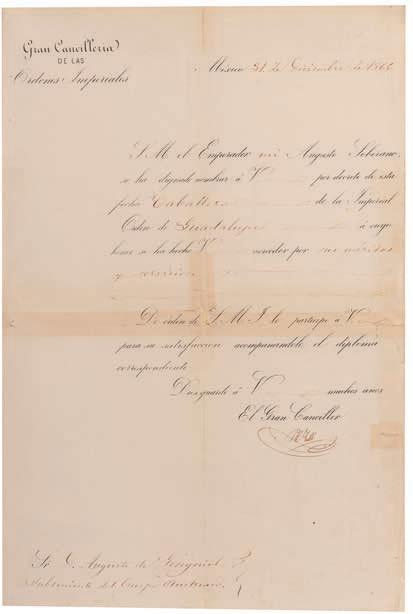 Gran Cancilleria
DE LAS
Ordenes Imperiales
México 31 de Diciembre de 1866
S.M. el Emperador mi Augusto Soberano,
se ha dignado nombrar á V por decreto de esta
fecha Caballero de la Imperial
Orden de Guadalupe á cuyo
honor se ha hecho V acreedor por sus méritos
y servicios
De orden de S.M.I. lo participo á V
para su satisfaccion acompañándole el diploma
correspondiente
Dios guarde á V muchos años
El Gran Canciller
Sr. D. Augusto de
Subteniente del Cuerpo